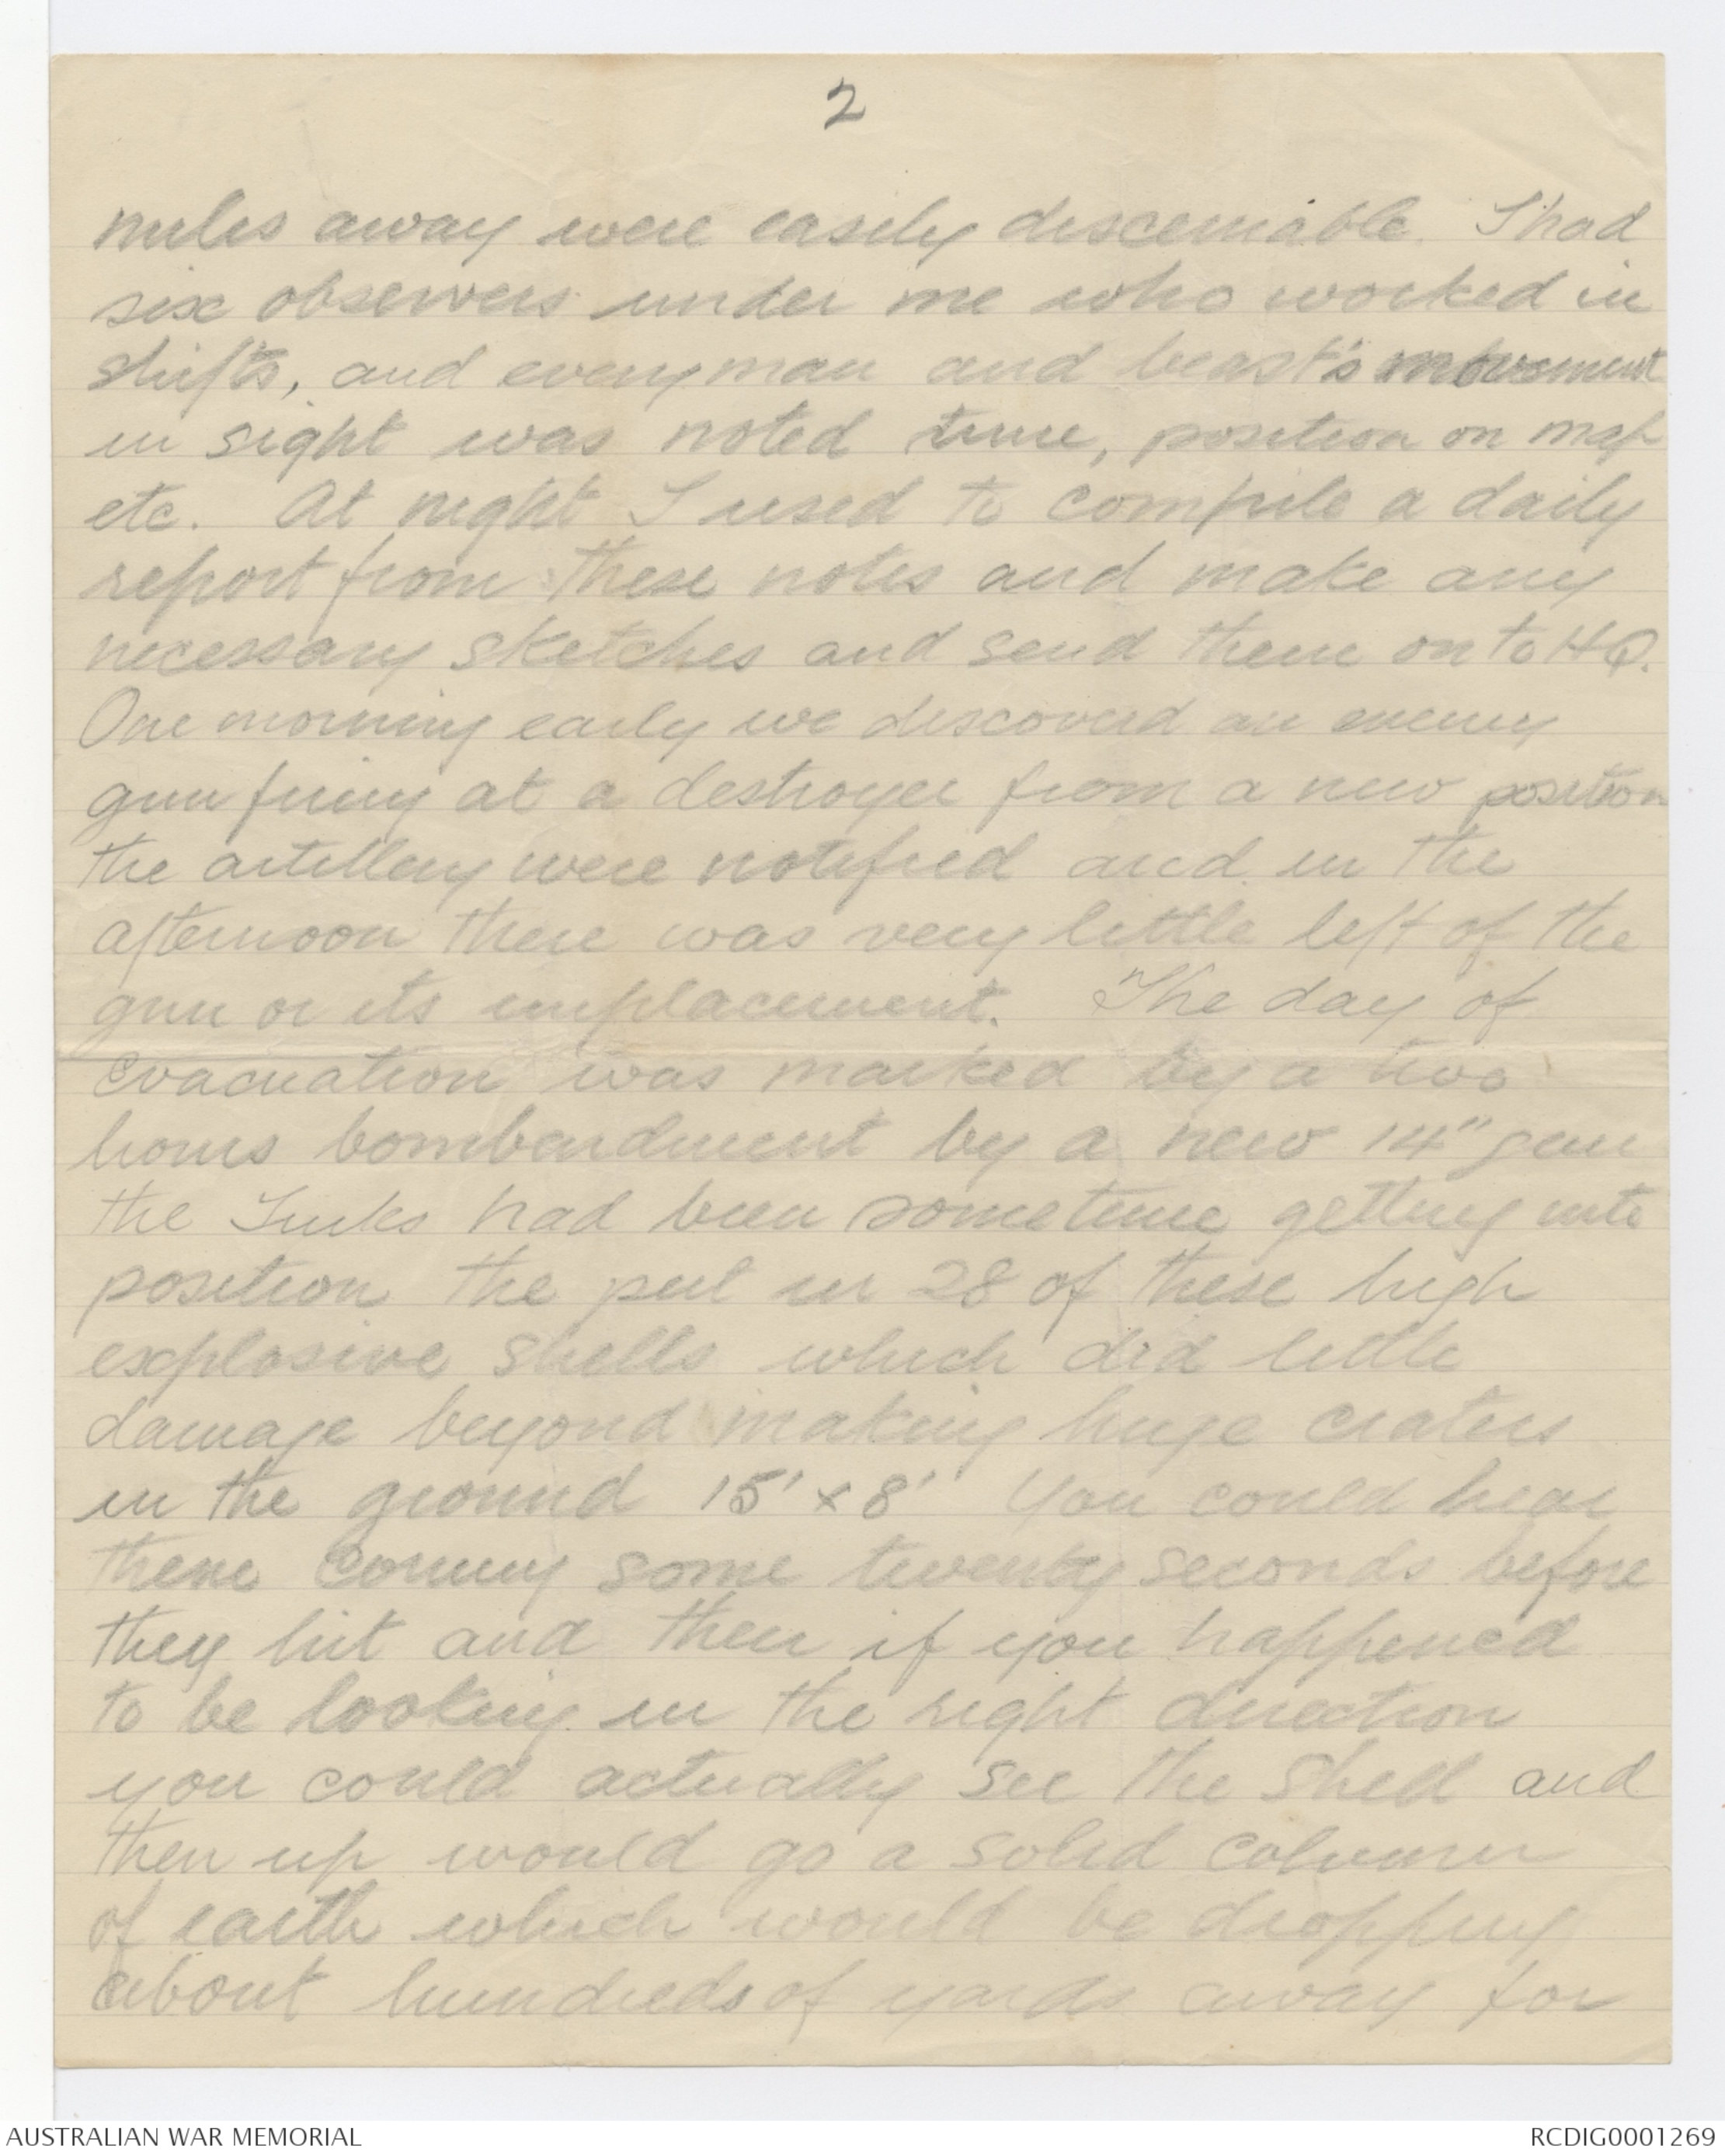 2
miles away were easily discernable. I had
six observers under me who worked in
shifts, and every man and beast's movement
in sight was noted time, position on map
etc. At night I used to compile a daily
report from these notes and make any
necessary sketches and send them on to HQ.
One morning early we discoverd an enemy
gun firing at a destroyer from a new position
the artillery were notified and in the
afternoon there was very little left of the
gun or its emplacement. The day of
evacuation was marked by a two
hours bombardment by a new 14" gun
the Turks had been sometime getting into
position the put in 28 of these high
explosive shells which did little
damage beyond making huge craters
in the ground 15' x 8' You could hear
them coming some twenty seconds before
they hit and then if you happened
to be looking in the right direction
you could actually see the shell and
then up would go a solid column
of earth which would be dropping
about hundreds of yards away for
AUSTRALIAN WAR MEMORIAL
RCDIG0001269